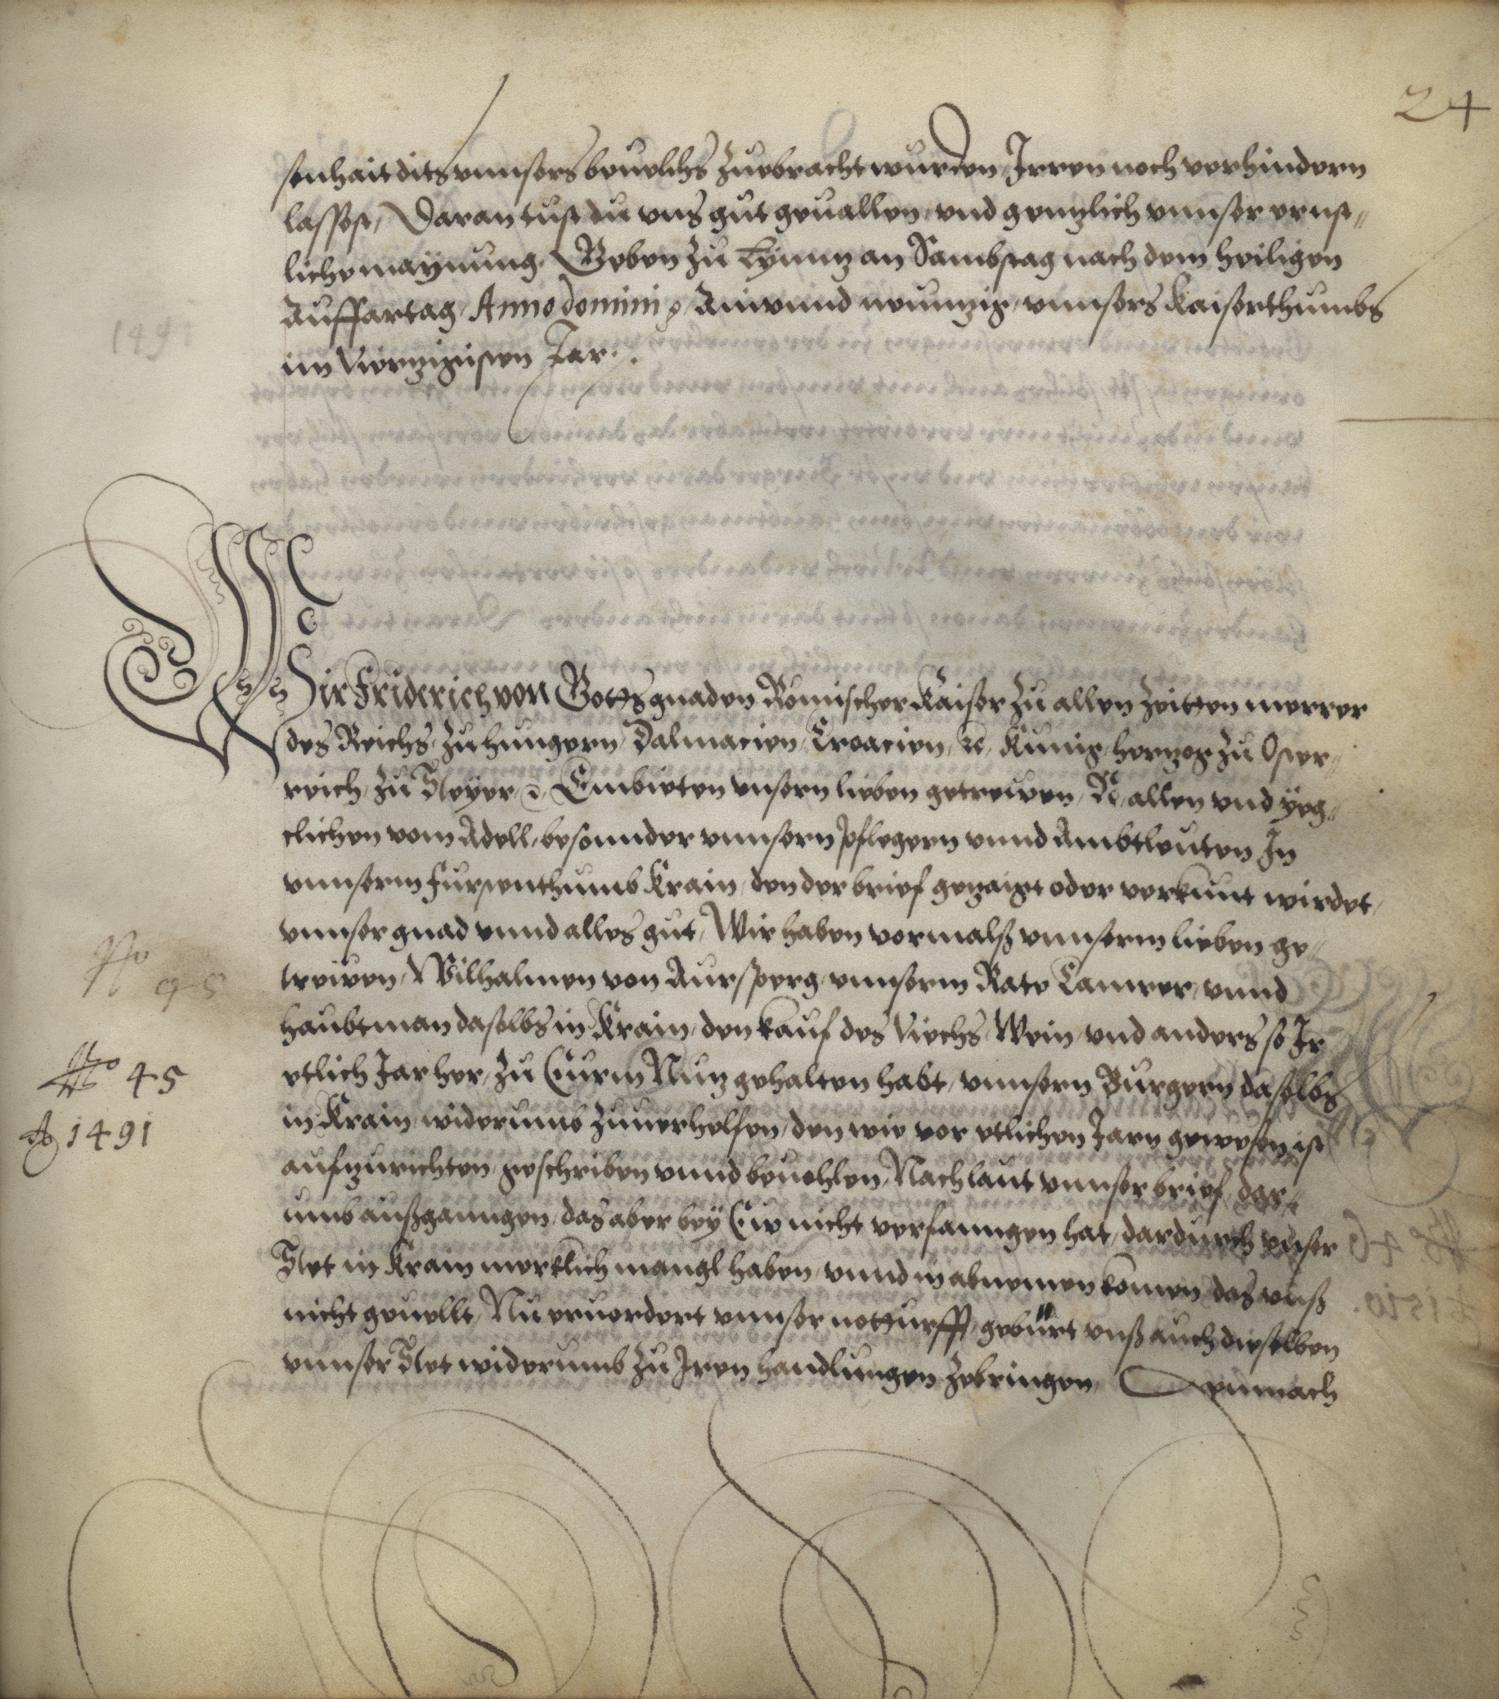 24
senhait dits unnsers beuelchs zuebracht wurden, Irren noch verhindern
lassest, Daran tust du uns gut geuallen, und genntzlich unnser ernst„
liche maynung. Geben zu Lynntz an Sambstag nach dem heiligen
Auffartag, Anno domini Ainundneuntzig, unnsers Kaiserthumbs
im Viertzigisten Jar.
1491
Wir Friderich von Gottes gnaden Römischer Kaiser zu allen Zeitten merrer
des Reichs, zu Hungern, Dalmacien, Croacien, etc. Kunig, hertzog zu Oster„
reich, zu Steyer etc. Embieten unsern lieben getrewen, N. allen und yeg„
clichen vom Adell, besonnder unnsern pflegern unnd Ambtleuten In
unnserm furstenthumb Krain, den der brief getzaigt oder verkunt wirdet,
unnser gnad unnd alles gut, Wir haben vormalß unnserm lieben ge„
treiven, Wilhalmen von Aursperg, unnserm Rate Camrer, unnd
haubtman daselbs in Krain, den kauf des Viechs, Wein, und anders so Ir
etlich Jar her, zu Eurm Nutz gehalten habt, unnsern Burgern daselbs
in Krain widerumb zuuerhelfen, den wie vor etlichen Jarn gewesen ist
aufzurichten geschriben unnd beuohlen, Nach laut unnser brief, dar„
umb außganngen, das aber bey Ew nicht verfanngen hat, dardurch unser
Stet in Krain mercklich mangl haben, unnd in abnemen komen, das unß
nicht geuellt, Nu eruordert unnser notturfft, gebürt unß auch dieselben
unnser Stet widerumb zu Iren handlungen zebringen, Demnach
No 45
No 45
Ao 1491